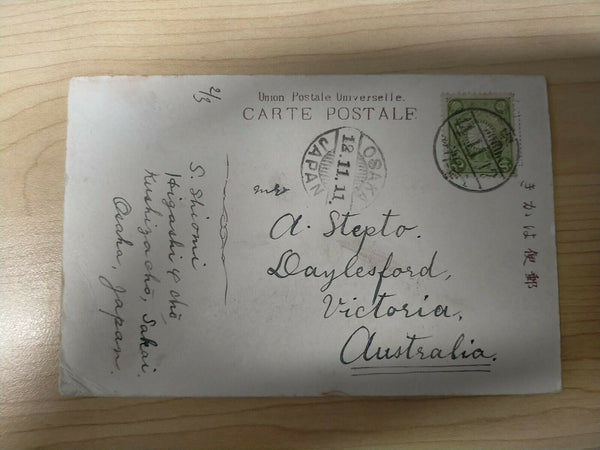 Union Postale Universelle.
CARTE POSTALE
OSAKA
18.11.11
JAPAN
郵便はかき
A. Stepto.
Daylesford,
Victoria,
Australia.
2/3
S. Shiomi
Higashi 4 chō
Kushiyachō, Sakai.
Osaka, Japan.